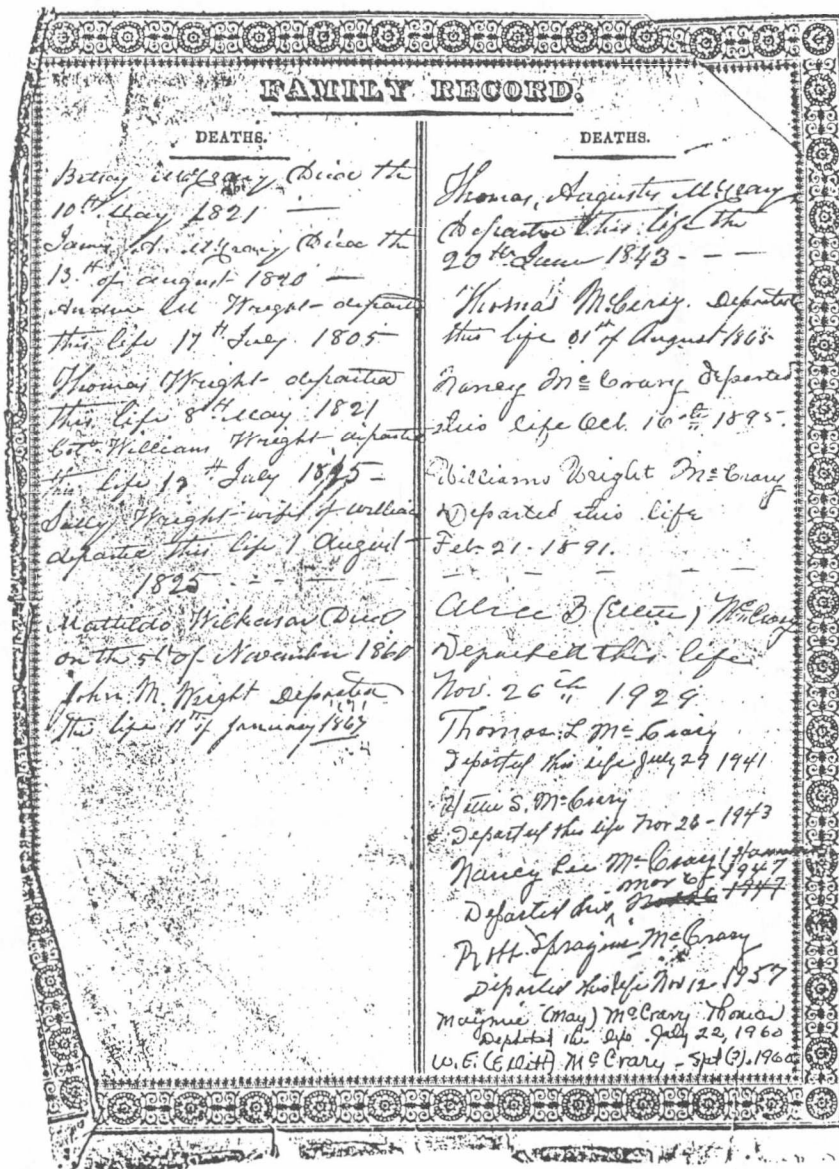 FAMILY RECORD.
DEATHS.
Betsey McCrary Died the
10th May 1821 —
James A. McCrary Died the
13th of august 1840 —
Andrew M Wright departed
this life 17th July 1805
Thomas Wright departed
this life 8th May 1821
Col. William Wright departed
this life 19th July 1825 —
Sally Wright wife of william
departed this life 1 August —
1825 - - - -
Matilda Wilkerson Died
on the 5th of November 1860
John M. Wright Departed
this life 11th of January 1867
DEATHS.
Thomas, Augustus McCrary
Departed this life the
20th June 1843 - - -
Thomas McCrary. Departed
this life 01st of August 1865
Nancy McCrary departed
this life Oct. 16th 1895.
Williams Wright McCrary
Departed this life
Feb. 21 - 1891.
- - - - -
Alice B (Ellett) McCrary
Departed this life
Nov. 26th 1929
Thomas L McCrary
Departed this life July 29 1941
Hattie S. McCrary
Departed this life Nov 26 - 1943
Nancy Lee McCrary (
Nov 6 - 1947
Departed this 1947
Robt. Sprague McCrary
Departed this life Nov 12 1957
Maymie (May) McCrary Thomas
Departed this life July 22, 1960
W. E. (Ellett) McCrary - Sept (?). 1960